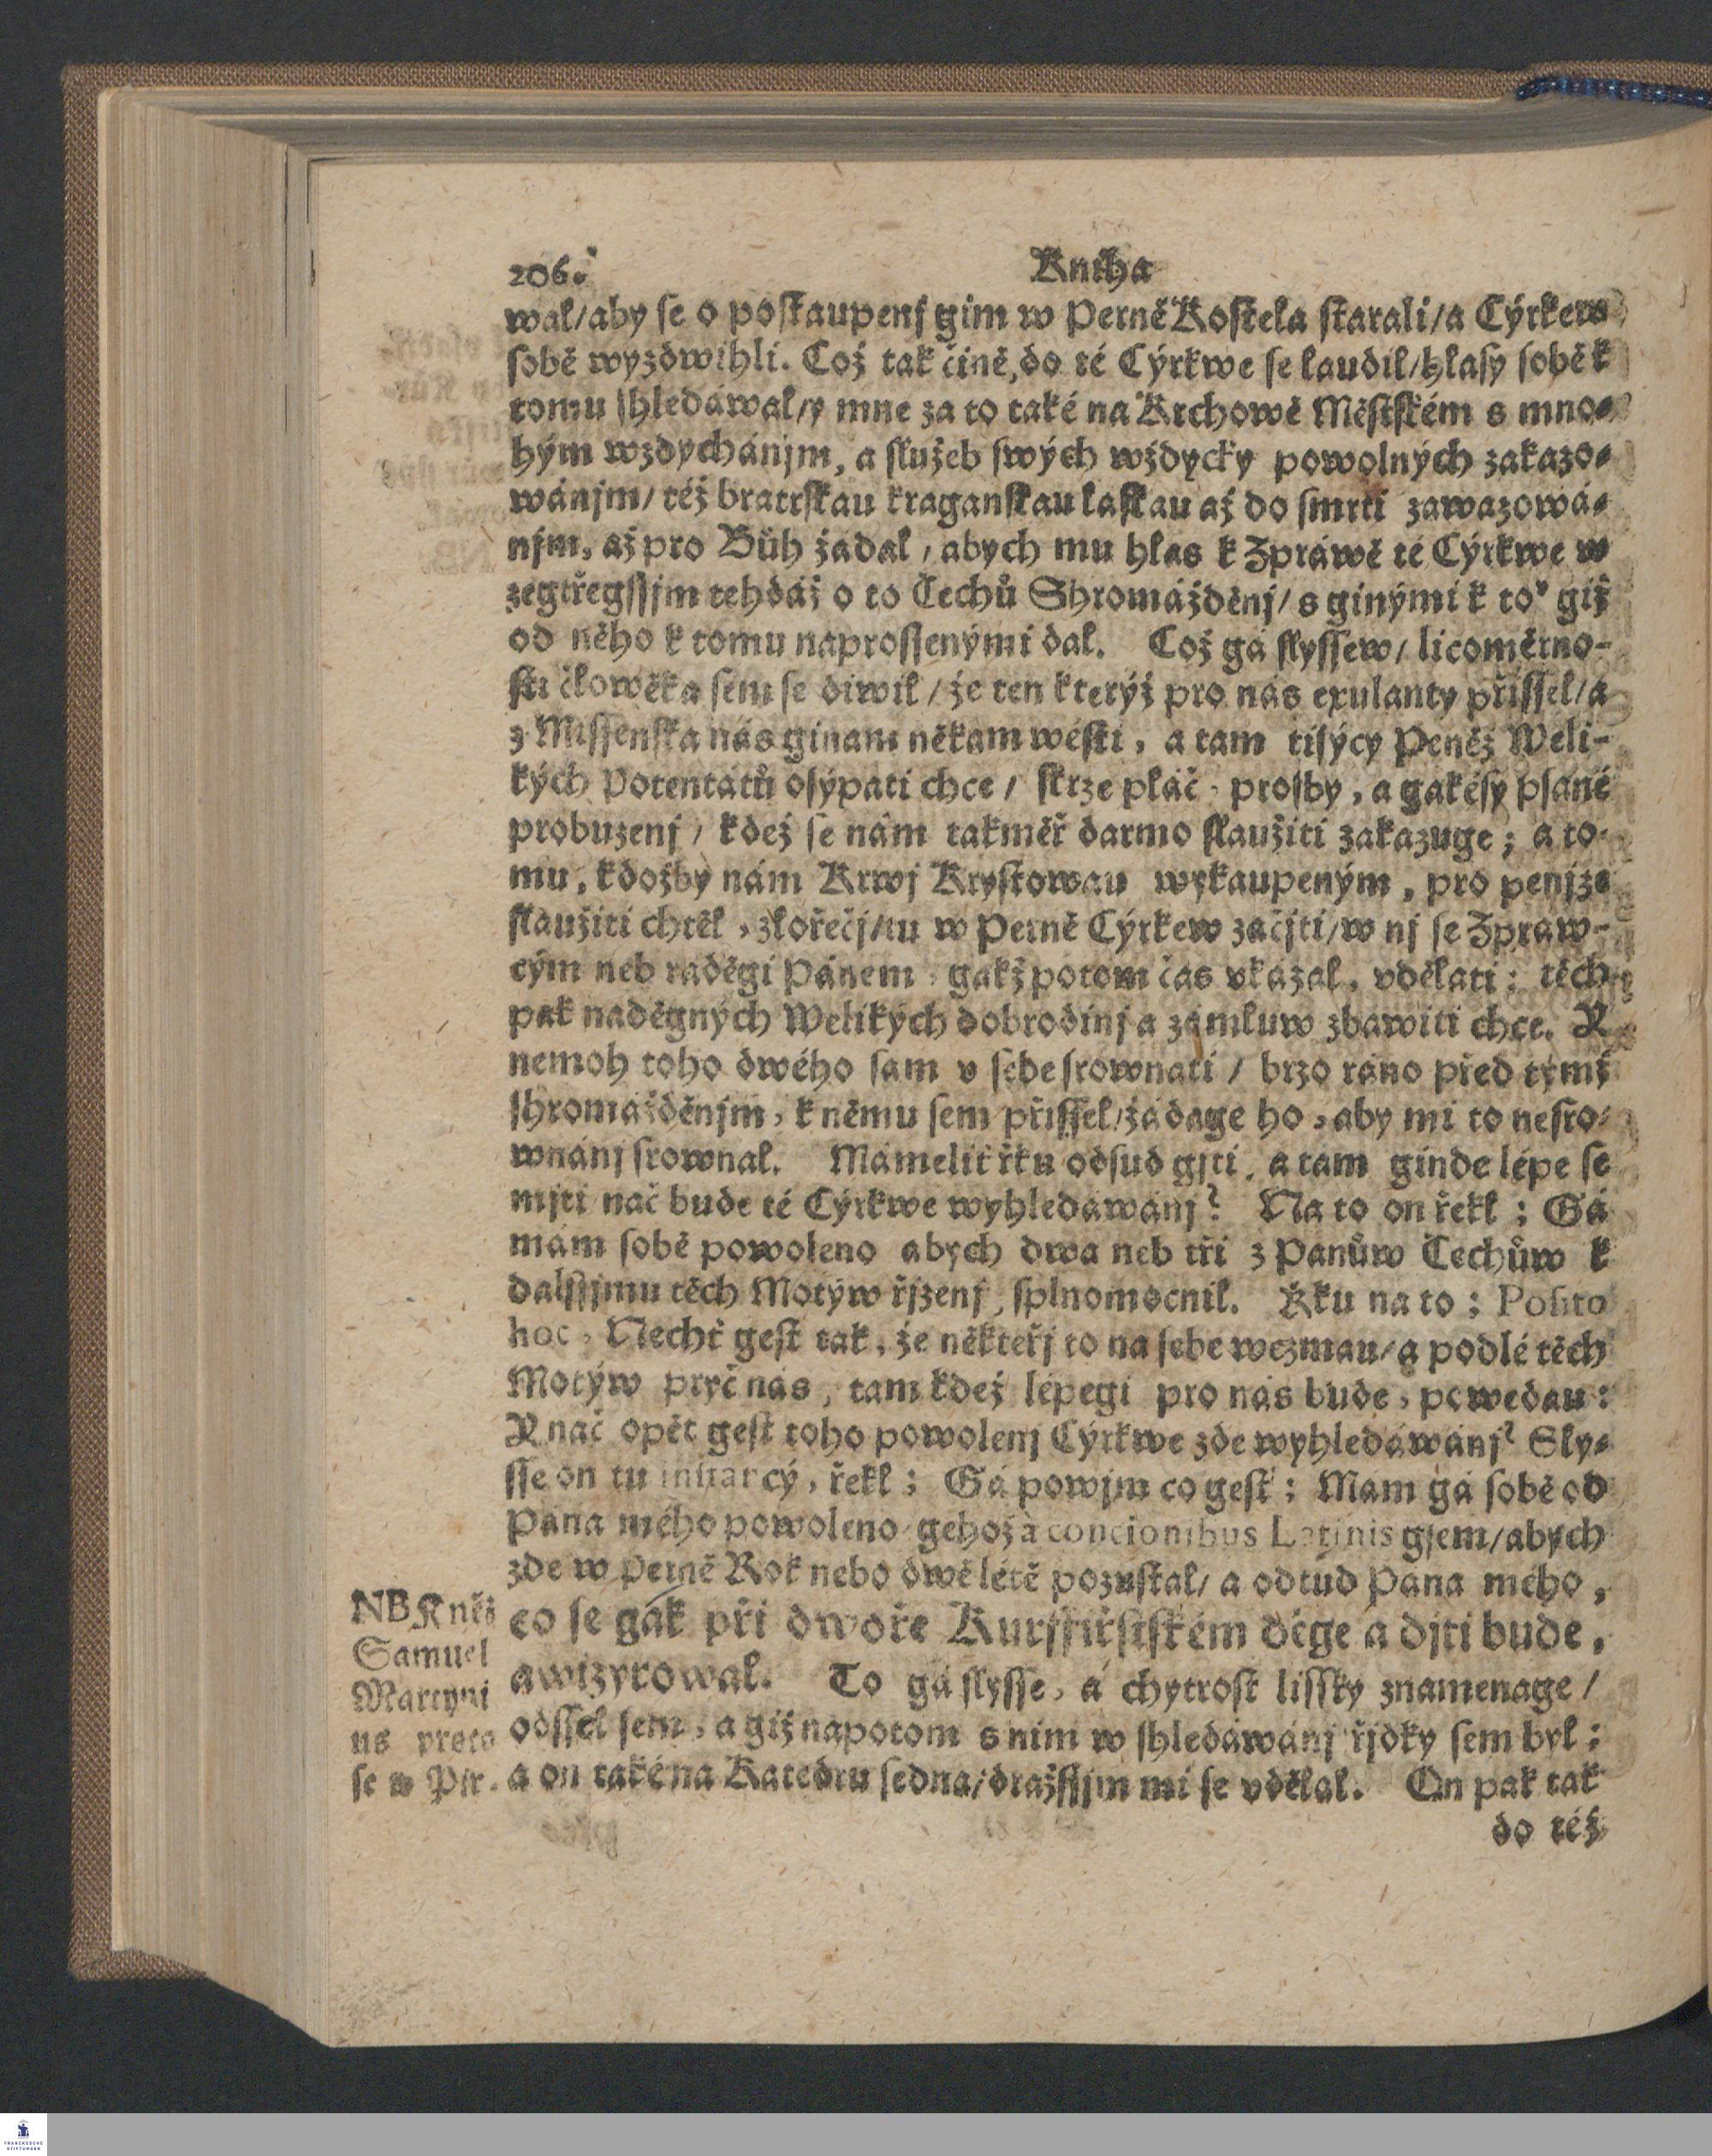 206. Kniha
wal/aby se o postaupenj gim w Perně Kostela starali/a Cýrkew
sobě wyzdwihli. Což tak čině, do té Cýrkwe se laudil/hlasy sobě k
tomu shledáwal/y mne za to také na Krchowě Městském s mno-
hým wzdychánjm, a služeb swých wždycky powolných zakazo-
wánjm/ též bratrskau kraganskau laskau až do smrti zawazowá-
njm, až pro Bůh žadal, abych mu hlas k Zpráwě té Cýrkwe w
zegtřegssjm tehdáž o to Čechů Shromážděnj/ s ginými k to° giž
od něho k tomu naprossenými dal. Což gá slyssew/ licoměrno-
sti člowěka sem se diwil/ že ten kterýž pro nás exulanty přissel/a
z Missenska nás ginam někam wésti, a tam tisýcy Peněz Weli-
kých Potentátů osýpati chce/ skrze pláč, prosby, a gakésy psané
probuzenj, kdež se nám takměř darmo slaužiti zakazuge; a to-
mu, kdožby nám Krwj Krystowau wykaupeným, pro penjze
slaužiti chtěl, zlořečj/tu w Perně Cýrkew začjti/w nj se Zpraw-
cým neb raděgi Pánem, gakž potom čas vkázal, vdělati; těch
pak naděgných Welikých dobrodinj a zámluw zbawiti chce. A
nemoh toho dwého sam v sebe srownati/ brzo ráno před týmž
shromážděnjm, k němu sem přissel/žádage ho, aby mi to nesro-
wnánj srownal. Mámelit řku odsud gjti, a tam ginde lépe se
mjti nač bude té Cýrkwe wyhledáwánj? Na to on řekl; Gá
mám sobě powoleno abych dwa neb tři z Panůw Čechůw k
dalssjmu těch Motýw řjzenj, splnomocnil. Řku na to; Posito
hoc, Nechť gest tak, že někteřj to na sebe wezmau/a podlé těch
Motýw pryč nás, tam kdež lépegi pro nás bude, powedau:
A nač opět gest toho powolenj Cýrkwe zde wyhledáwánj? Sly-
sse on tu instancý, řekl; Gá powjm co gest; Mám gá sobě od
Pána mého powoleno gehož à concionibus Latinis gsem/abych
zde w Perně Rok nebo dwě létě pozustal/ a odtud Pána mého,
co se gak při dwoře Kurffirstském děge a djti bude,
awizyrowal. To gá slysse, a chytrost lissky znamenage/
odssel sem, a giž napotom s nim w shledáwánj řjdky sem byl;
a on také na Katedru sedna/dražssjm mi se vdělal. On pak tak
do též
NB Kněz
Samuel
Martyni
us proto
se w Pir.
FRANCKESCHE
STIFTUNGEN